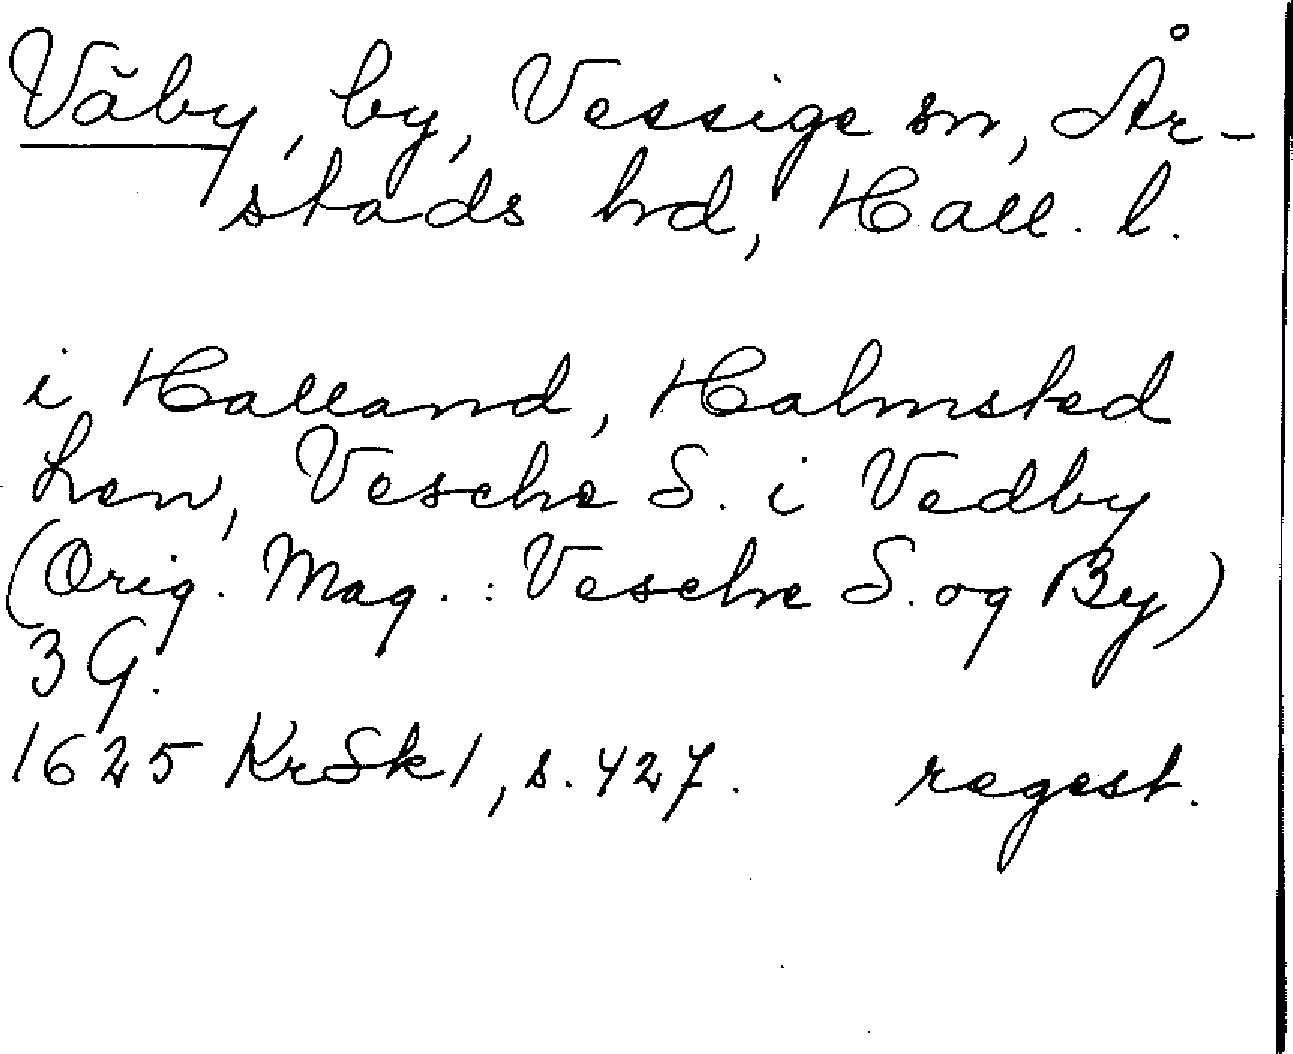 Väby, by, Vessige sn, År-
stads hd, Hall. l.
i Halland, Halmsted
Len, Vesche S. i Vedby
(Orig. Mag. : Vesche S. og By)
3 G.
1625 KrSk 1, s. 427. regest.